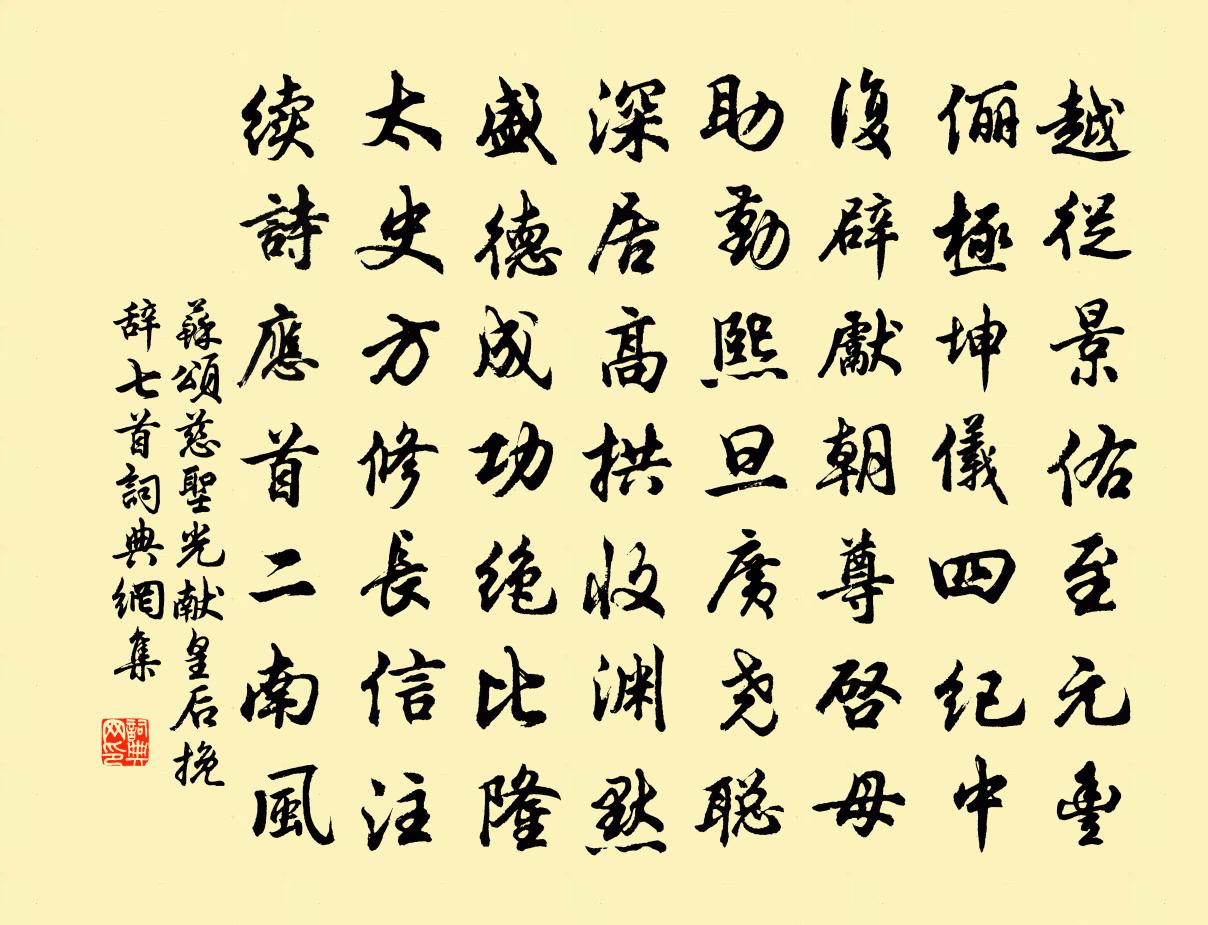 越從景佑至元豐
儷極坤儀四紀中
復辟獻朝尊啓母
助勤熙旦廣尧聪
深居高拱收渊默
盛德成功绝比隆
太史方修長信注
续詩應首二南風
蘇頌慈聖光献皇后挽
辞七首詞典網集
詞典网印